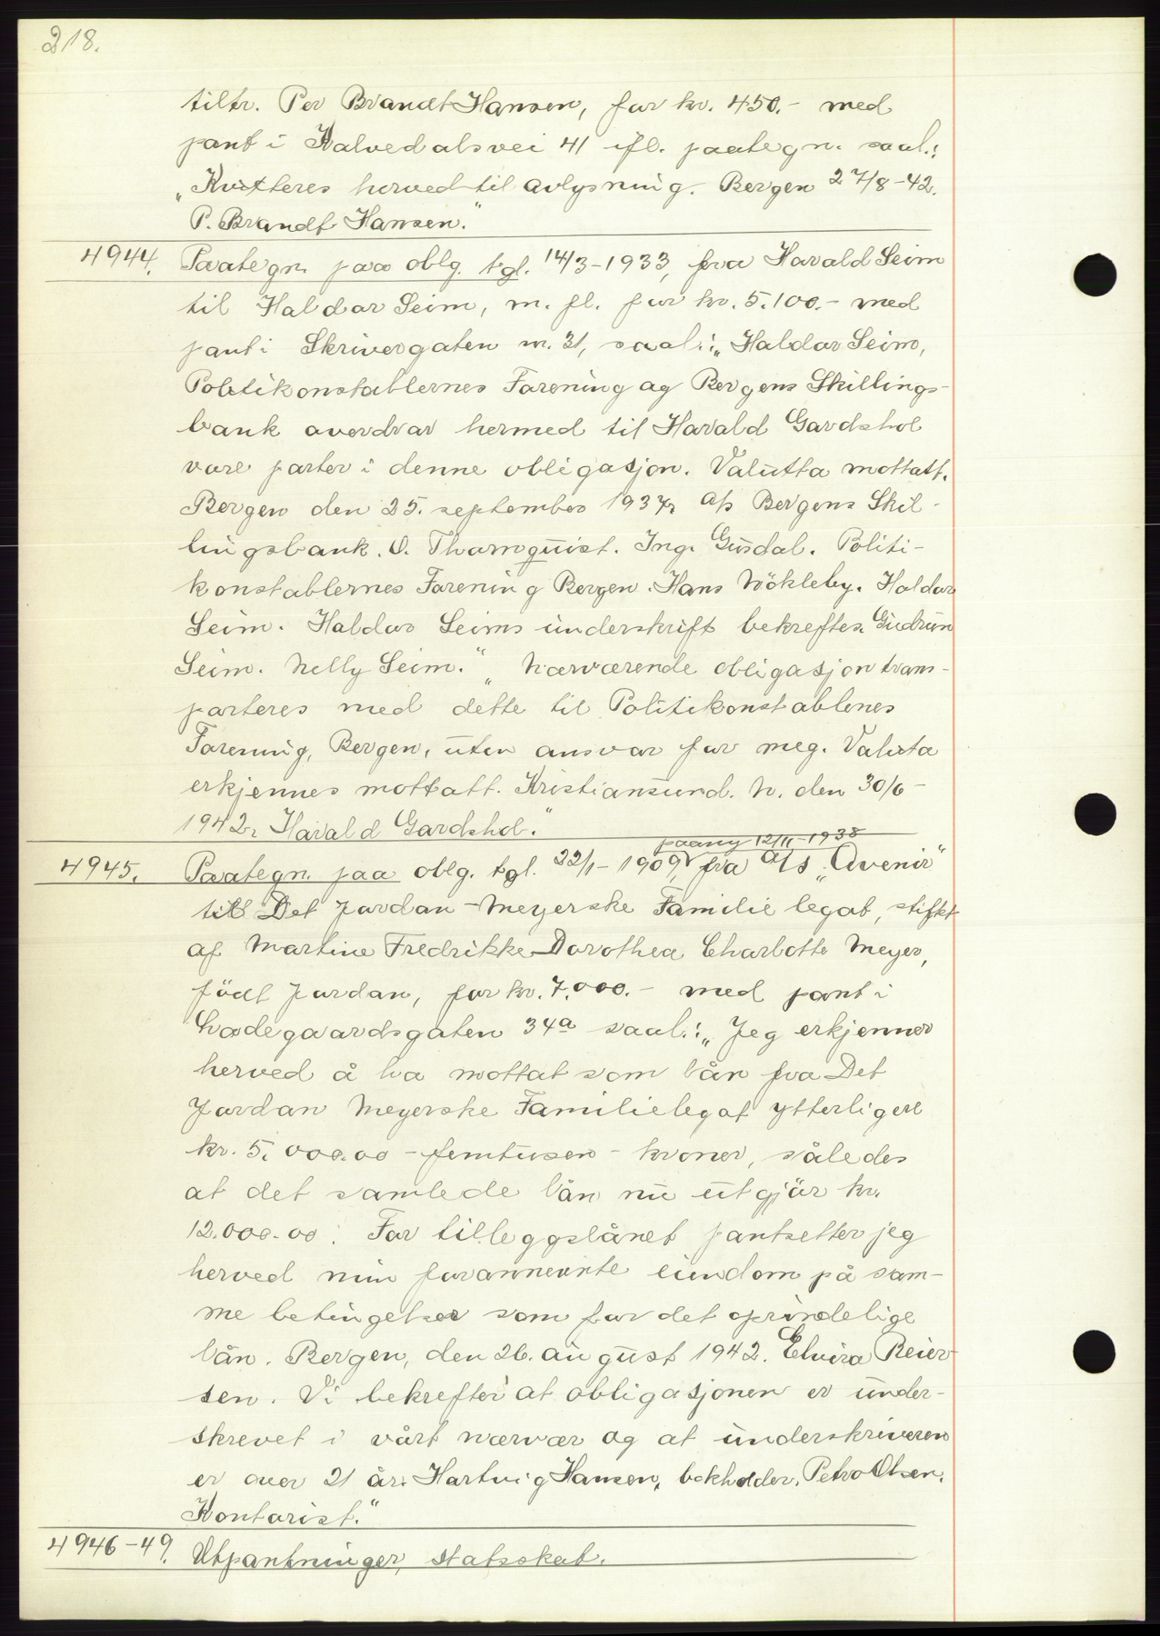 218.
tiltr. Per Brandt Hansen, for kr. 450.- med
pant i Kalvedalsvei 41 ifl. paategn. saal.:
„Kvitteres herved til avlysning. Bergen 27/8-42.
P. Brandt Hansen."
4944. Paategn. paa oblg. tgl. 14/3-1933, fra Harald Seim
til Haldor Seim, m. fl. for kr. 5.100.- med
pant i Skrivergaten nr. 31, saal.: „Haldor Seim,
Politikonstablernes Forening og Bergens Skillings-
bank overdrar hermed til Harald Gardshol
vore parter i denne obligasjon. Valutta mottatt.
Bergen den 25. september 1937, A/s Bergens Skil-
lingsbank. O. Thornquist. Ing. Gusdal. Politi-
konstablernes Forening Bergen. Hans Nökleby. Haldor
Seim. Haldor Seims underskrift bekreftes. Gudrun
Seim. Nelly Seim." „Nærværende obligasjon trans-
porteres med dette til Politikonstablenes
Forening, Bergen, uten ansvar for meg. Valuta
erkjennes mottatt. Kristiansund. N. den 30/6-
1942, Harald Gardshol."
paany 12/11-1938
4945. Paategn. paa oblg. tgl. 22/1-1909, fra A/s „Avenir"
till Det Jordan-Meyerske Familie legat, stiftet
af Martine Fredrikke Dorothea Charlotte Meyer,
födt Jordan, for kr. 7.000.- med pant i
Ladegaardsgaten 34a saal.: „Jeg erkjenner
herved å ha mottat som lån fra Det
Jordan Meyerske Familielegat ytterligere
kr. 5.000.00 - femtusen - kroner, således
at det samlede lån nu utgjör kr.
12.000.00. For tilleggslånet pantsetter jeg
herved min forannevnte eiendom på sam-
me betingelser som for det oprindelige
lån. Bergen, den 26. august 1942. Elvira Reier-
sen. Vi bekrefter at obligasjonen er under-
skrevet i vårt nærvær og at underskriveren
er over 21 år. Hartvig Hansen, bokholder. Petra Olsen,
Kontorist."
4946-49. Utpantninger, statsskat.